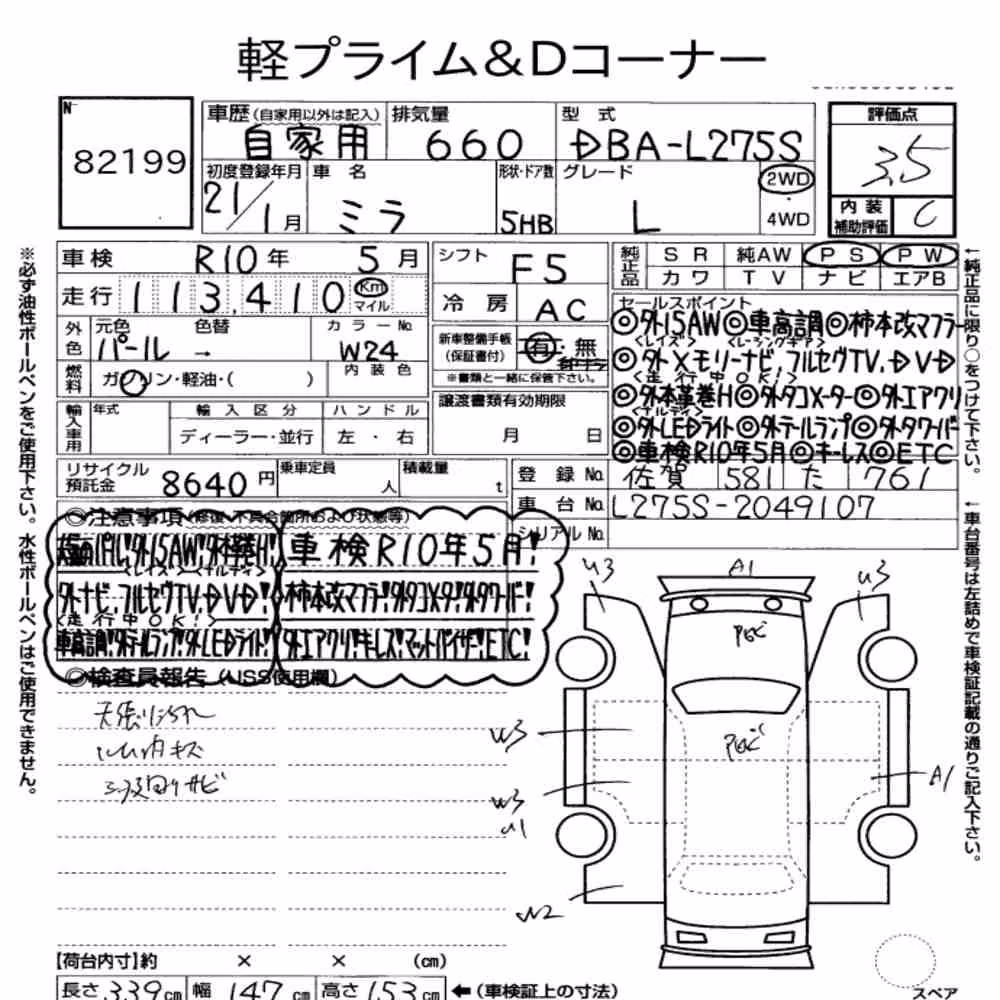 軽プライム&Dコーナー
N
82199
車歴(自家用以外は記入)
自家用
排気量
660
型式
DBA-L275S
評価点
3.5
初度登録年月
21/1月
車名
ミラ
形状・ドア数
5HB
グレード
L
2WD
4WD
内装
補助評価
C
車検 R10年 5月
シフト
F5
純正品
SR 純AW PS PW
カワ TV ナビ エアB
走行 113,410 Km
マイル
冷房 AC
外色
元色 色替
パール →
カラーNo.
W24
内装色
新車整備手帳
(保証書付)
有・無
※書類と一緒に保管下さい。
燃料
ガソリン・軽油・( )
セールスポイント
◎外15AW◎車高調◎柿本改マフラー
<レイズ> <レーシングギア>
◎外メモリーナビ、フルセグTV、DVD
<走行中OK!>
◎外本革巻H◎外タコメーター◎外エアクリ
<ナルディ>
◎外LEDライト◎外テールランプ◎外タワーバー
◎車検R10年5月◎キーレス◎ETC
輸入車用
年式
輸入区分
ハンドル
ディーラー・並行
左・右
譲渡書類有効期限
月 日
リサイクル
預託金
8640円
乗車定員
人
積載量
t
登録No. 佐賀 581 た 761
車台No. L275S-2049107
シリアルNo.
◎注意事項(修復・不具合箇所および状態等)
パール!外15AW!外本革巻H!
<レイズ> <ナルディ>
外ナビ、フルセグTV、DVD!
<走行中OK!>
車高調!外テールランプ!外LEDライト!
車検R10年5月!
柿本改マフラー!外タコメーター!外タワーバー!
外エアクリ!キーレス!マットバイザー!ETC!
◎検査員報告(USS使用欄)
天張りにられ
ルーム内キズ
下廻りサビ
U3
A1
U3
W3
W3
A1
A1
【荷台内寸】約 × × (cm)
長さ339cm 幅147cm 高さ153cm
←(車検証上の寸法)
スペア
※必ず油性ボールペンをご使用下さい。水性ボールペンはご使用できません。
←純正品に限り○をつけて下さい。
←車台番号は左詰めで車検証記載の通りご記入下さい。